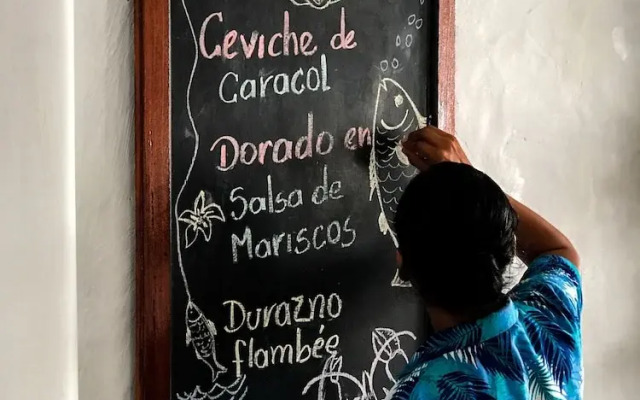 Ceviche de
Caracol
Dorado en
Salsa de
Mariscos
Durazno
flambée